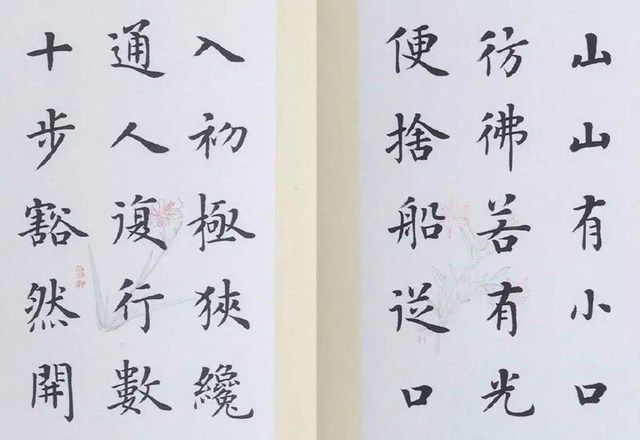 山山有小口
彷彿若有光
便捨船从口
入初極狹纔
通人復行數
十步豁然開